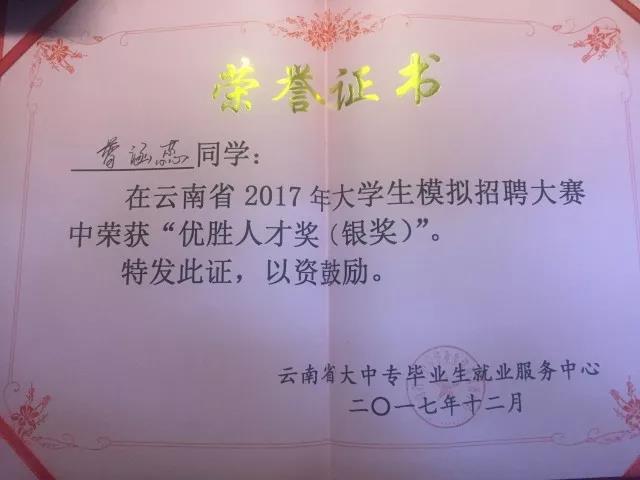 荣誉证书
曾涵恋同学：
在云南省2017年大学生模拟招聘大赛
中荣获“优胜人才奖（银奖）”。
特发此证，以资鼓励。
云南省大中专毕业生就业服务中心
二〇一七年十二月